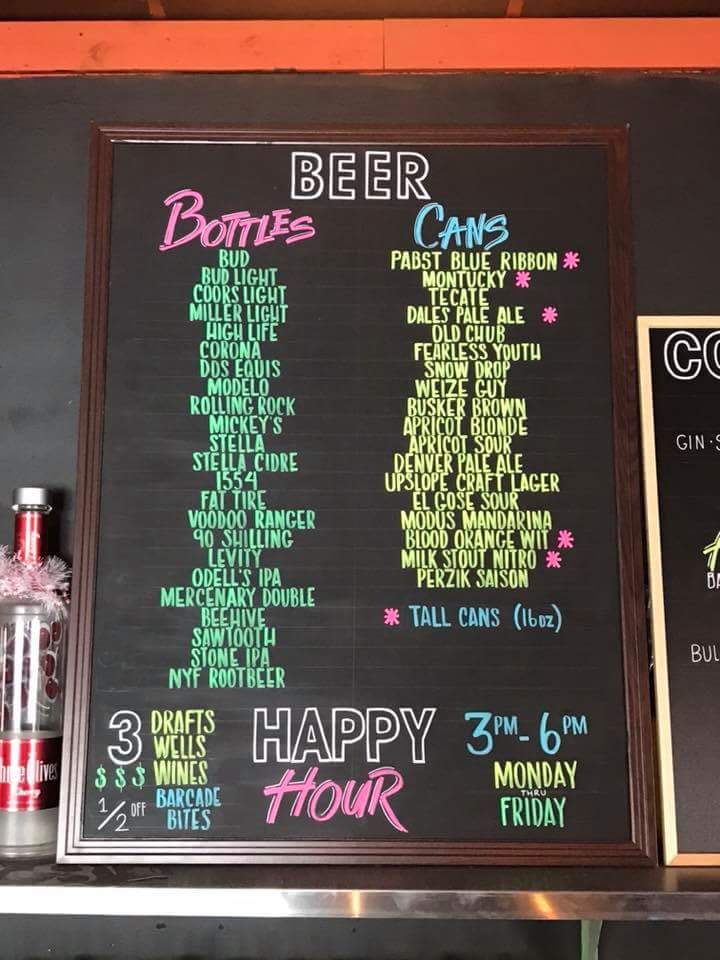 BEER
BOTTLES
BUD
BUD LIGHT
COORS LIGHT
MILLER LIGHT
HIGH LIFE
CORONA
DOS EQUIS
MODELO
ROLLING ROCK
MICKEY'S
STELLA
STELLA CIDRE
1554
FAT TIRE
VOODOO RANGER
90 SHILLING
LEVITY
ODELL'S IPA
MERCENARY DOUBLE
BEEHIVE
SAWTOOTH
STONE IPA
NYF ROOTBEER
CANS
PABST BLUE RIBBON *
MONTUCKY *
TECATE
DALES PALE ALE *
OLD CHUB
FEARLESS YOUTH
SNOW DROP
WEIZE GUY
BUSKER BROWN
APRICOT BLONDE
APRICOT SOUR
DENVER PALE ALE
UPSLOPE CRAFT LAGER
EL GOSE SOUR
MODUS MANDARINA
BLOOD ORANGE WIT *
MILK STOUT NITRO *
PERZIK SAISON
* TALL CANS (16oz)
3 DRAFTS
WELLS
$ $ $ WINES
1/2 OFF BARCADE
BITES
HAPPY
HOUR
3PM - 6PM
MONDAY
THRU
FRIDAY
CO
GIN · S
BA
BUL
Olives
Cherry